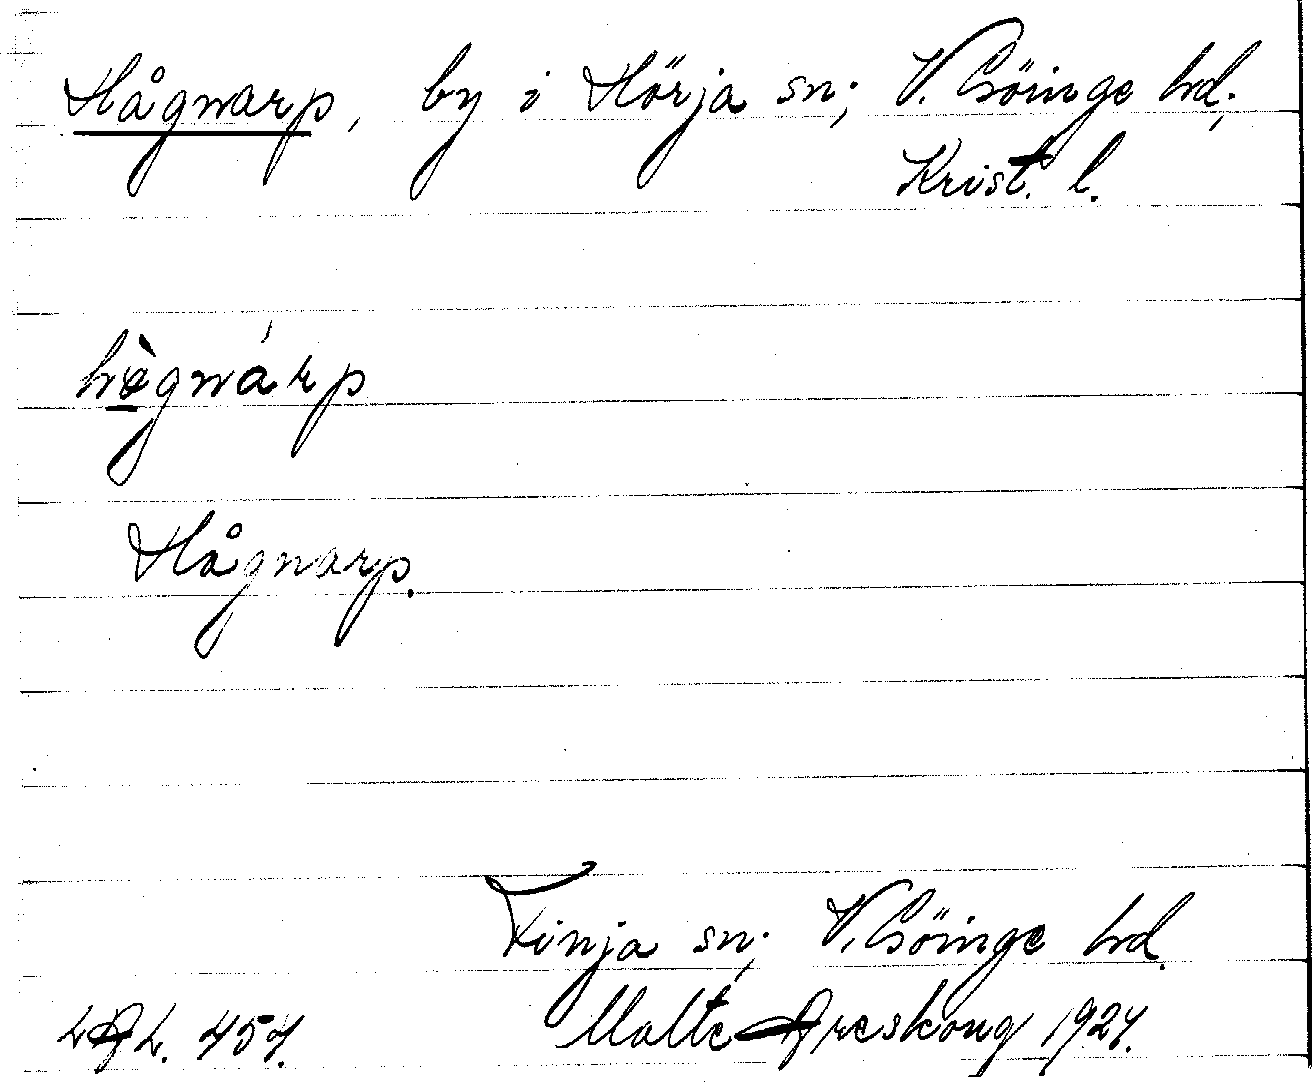 Hågnarp, by i Hörja sn; V. Göinge hd;
Krist. l.
hògnárp
Hågnarp.
Finja sn; V. Göinge hd.
LAL. 454. Malte Areskoug 1924.